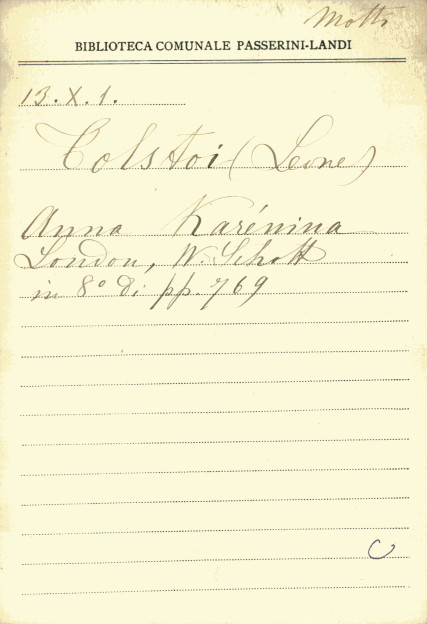 Motti
BIBLIOTECA COMUNALE PASSERINI-LANDI
13.X.1.
Tolstoi (Leone)
Anna Karénina
London, W. Schott
in 8º di pp. 769
C